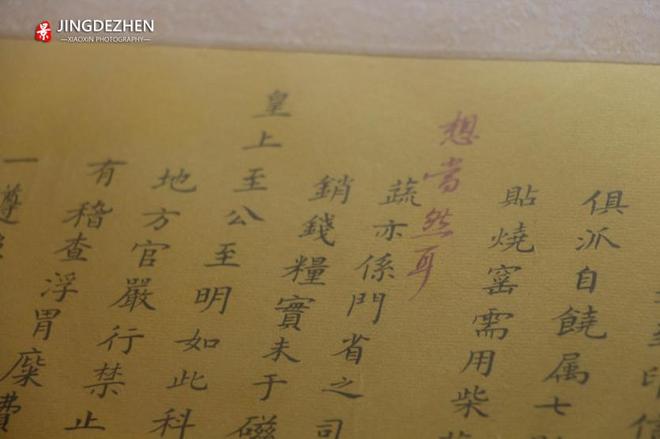 景 JINGDEZHEN
—XIAOXIN PHOTOGRAPHY—
俱派自饒属七
貼燒窰需用柴
想當然耳
蔬亦係門省之司
銷錢糧實未于磁
皇上至公至明如此科
地方官嚴行禁止
有稽查浮冐糜費
一